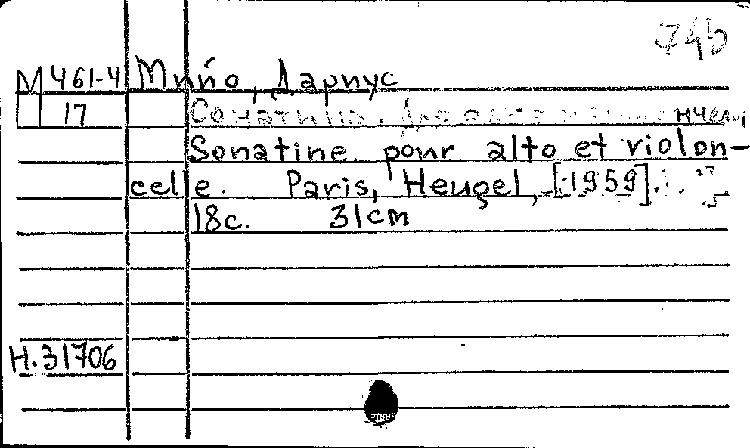 745
М 461-4 Мийо, Дариус
17 Сонатина. Для альта и виолончели
Sonatine pour alto et violon-
celle. Paris, Heugel, [1959].
18с. 31cm
Н.31706